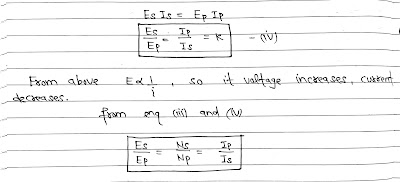 Es Is = Ep Ip
Es/Ep = Ip/Is = K - (iv)
From above E α 1/i , so if voltage increases, current
decreases.
from enq (iii) and (iv)
Es/Ep = Ns/Np = Ip/Is